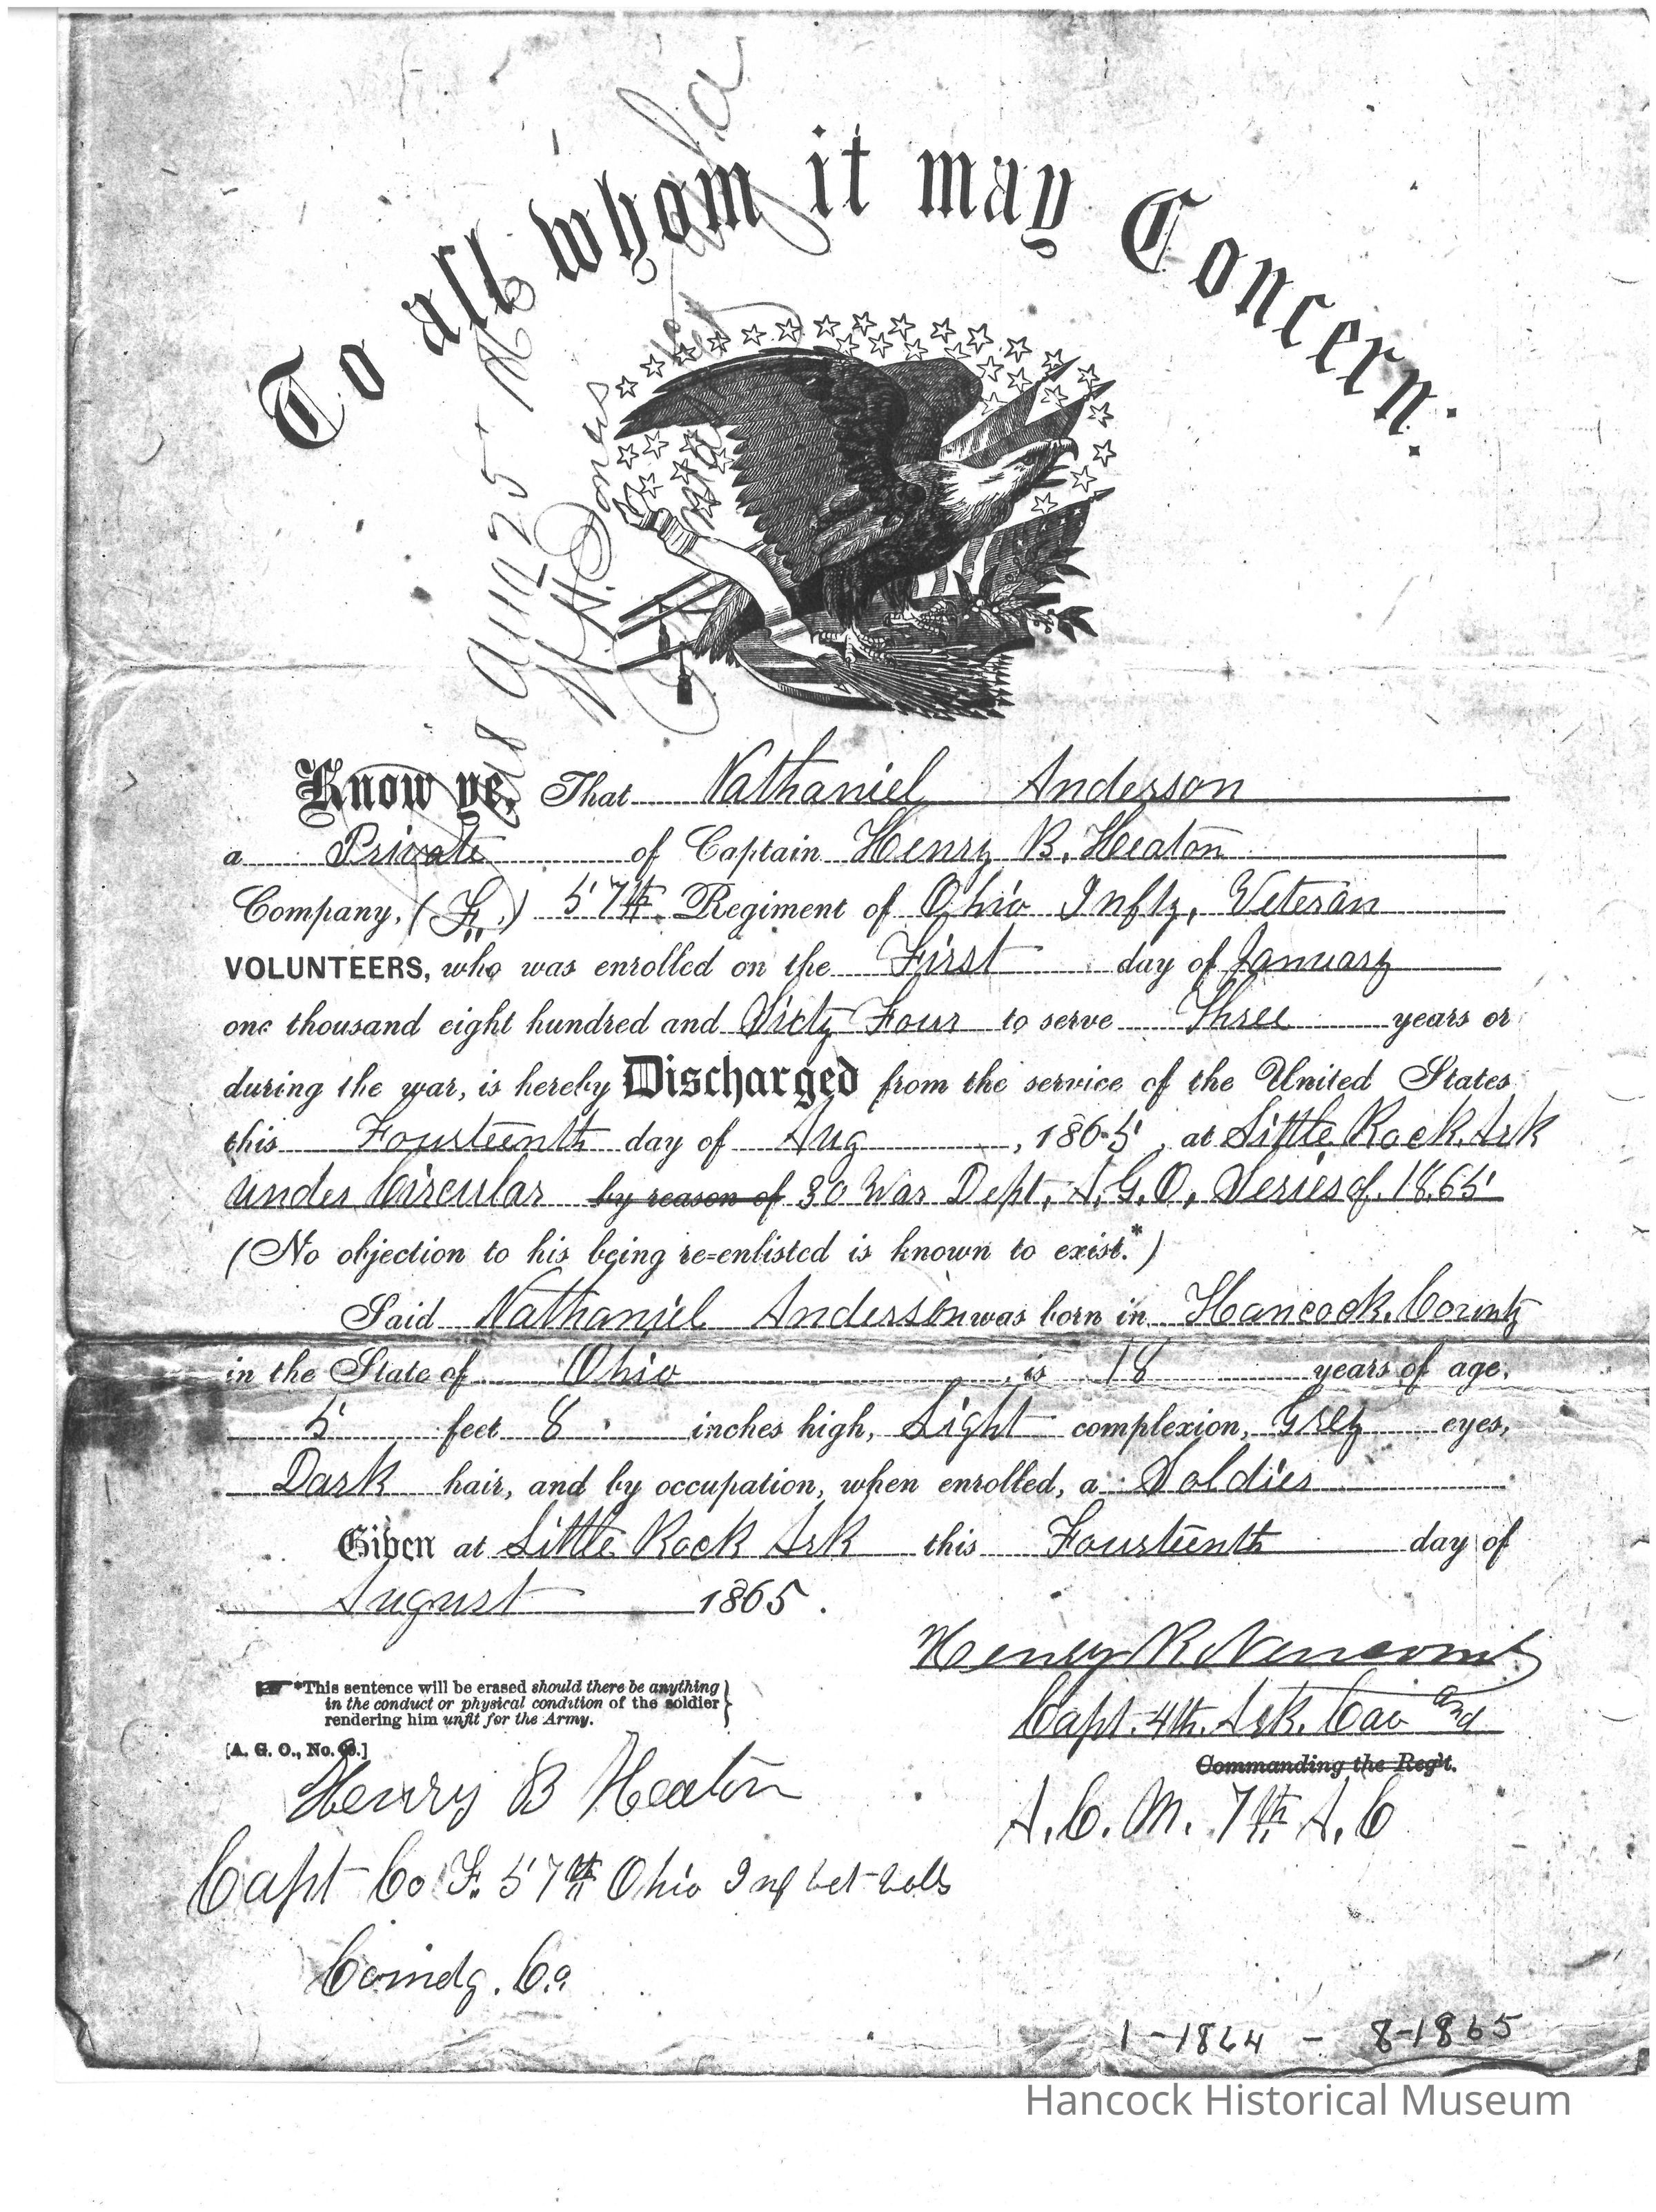 To all whom it may Concern:
Know ye, That Nathaniel Anderson
a Private of Captain Henry B. Heaton
Company, (F.) 57th. Regiment of Ohio Infty, Veteran
VOLUNTEERS, who was enrolled on the First day of January
one thousand eight hundred and Sixty Four to serve Three years or
during the war, is hereby Discharged from the service of the United States
this Fourteenth day of Aug, 1865, at Little Rock, Ark
under Circular by reason of 30 War Dept, A.G.O, Series of 1865
(No objection to his being re-enlisted is known to exist.*)
Said Nathaniel Anderson was born in Hancock County
in the State of Ohio, is 18 years of age,
5 feet 8 inches high, Light complexion, Grey eyes,
Dark hair, and by occupation, when enrolled, a Soldier
Given at Little Rock Ark this Fourteenth day of
August 1865.
Henry R.
Capt. 4th. Ark. Cav and
Commanding the Reg't.
A.C.M. 7th A.C
*This sentence will be erased should there be anything
in the conduct or physical condition of the soldier
rendering him unfit for the Army.
[A. G. O., No. .]
Henry B Heaton
Capt Co F. 57th Ohio Inf Vet Vols
Comdg. Co.
1-1864 - 8-1865
Hancock Historical Museum